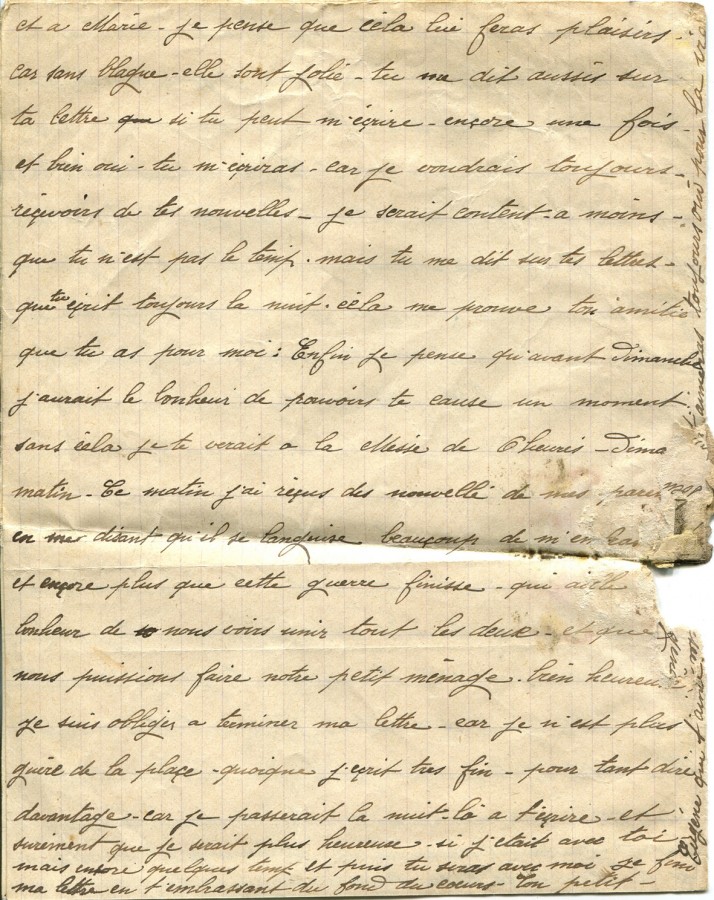 et a Marie - je pense que çéla lui feras plaisirs -
car sans blague - elle sont jolie - tu me dit aussis sur
ta lettre que si tu peut m'éçrire - ençore une fois -
et bien oui - tu m'éçriras - car je voudrais toujours -
réçevoirs de tes nouvelles - je serait content - a moins -
que tu n'est pas le temp. mais tu me dit sur tes lettres -
que tu éçrit toujours la nuit. çéla me prouve ton amitié
que tu as pour moi : Enfin je pense qu'avant dimanche
j'aurait le bonheur de pouvoirs te cause un moment
sans çéla je te verait a la Messe de 6 heures - dima
matin - Ce matin j'ai réçus des nouvelle de mes paren
en me disant qu'il se languise beauçoup de m'en
et ençore plus que cette guerre finisse - qui
bonheur de nous voirs unir tout les deux - et que
nous puissions faire notre petit ménage. bien heureux
Je suis obliger a terminer ma lettre - car je n'est plus
guère de la plaçe - quoique j'éçrit tres fin - pour tant dire
davantage - car je passerait la nuit - là a t'éçrire - et
surement que je serait plus heureuse - si j'était avec toi
mais encore quelques temp et puis tu seras avec moi Je fini
ma lettre en t'embrassant du fond du coeurs - Ton petit -
Eugène qui t'aime
t'aimeras toujours oui pour la vie